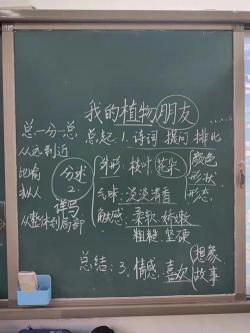 我的植物朋友
总—分—总 总起 1. 诗词 提问 排比 ……
从远到近
比喻
拟人
从整体到局部
分述
2.
详写
外形：枝叶、花朵 颜色 形状 形态
气味：淡淡清香
触感：柔软、娇嫩
粗糙、坚硬
总结：3. 情感：喜欢 想象 故事